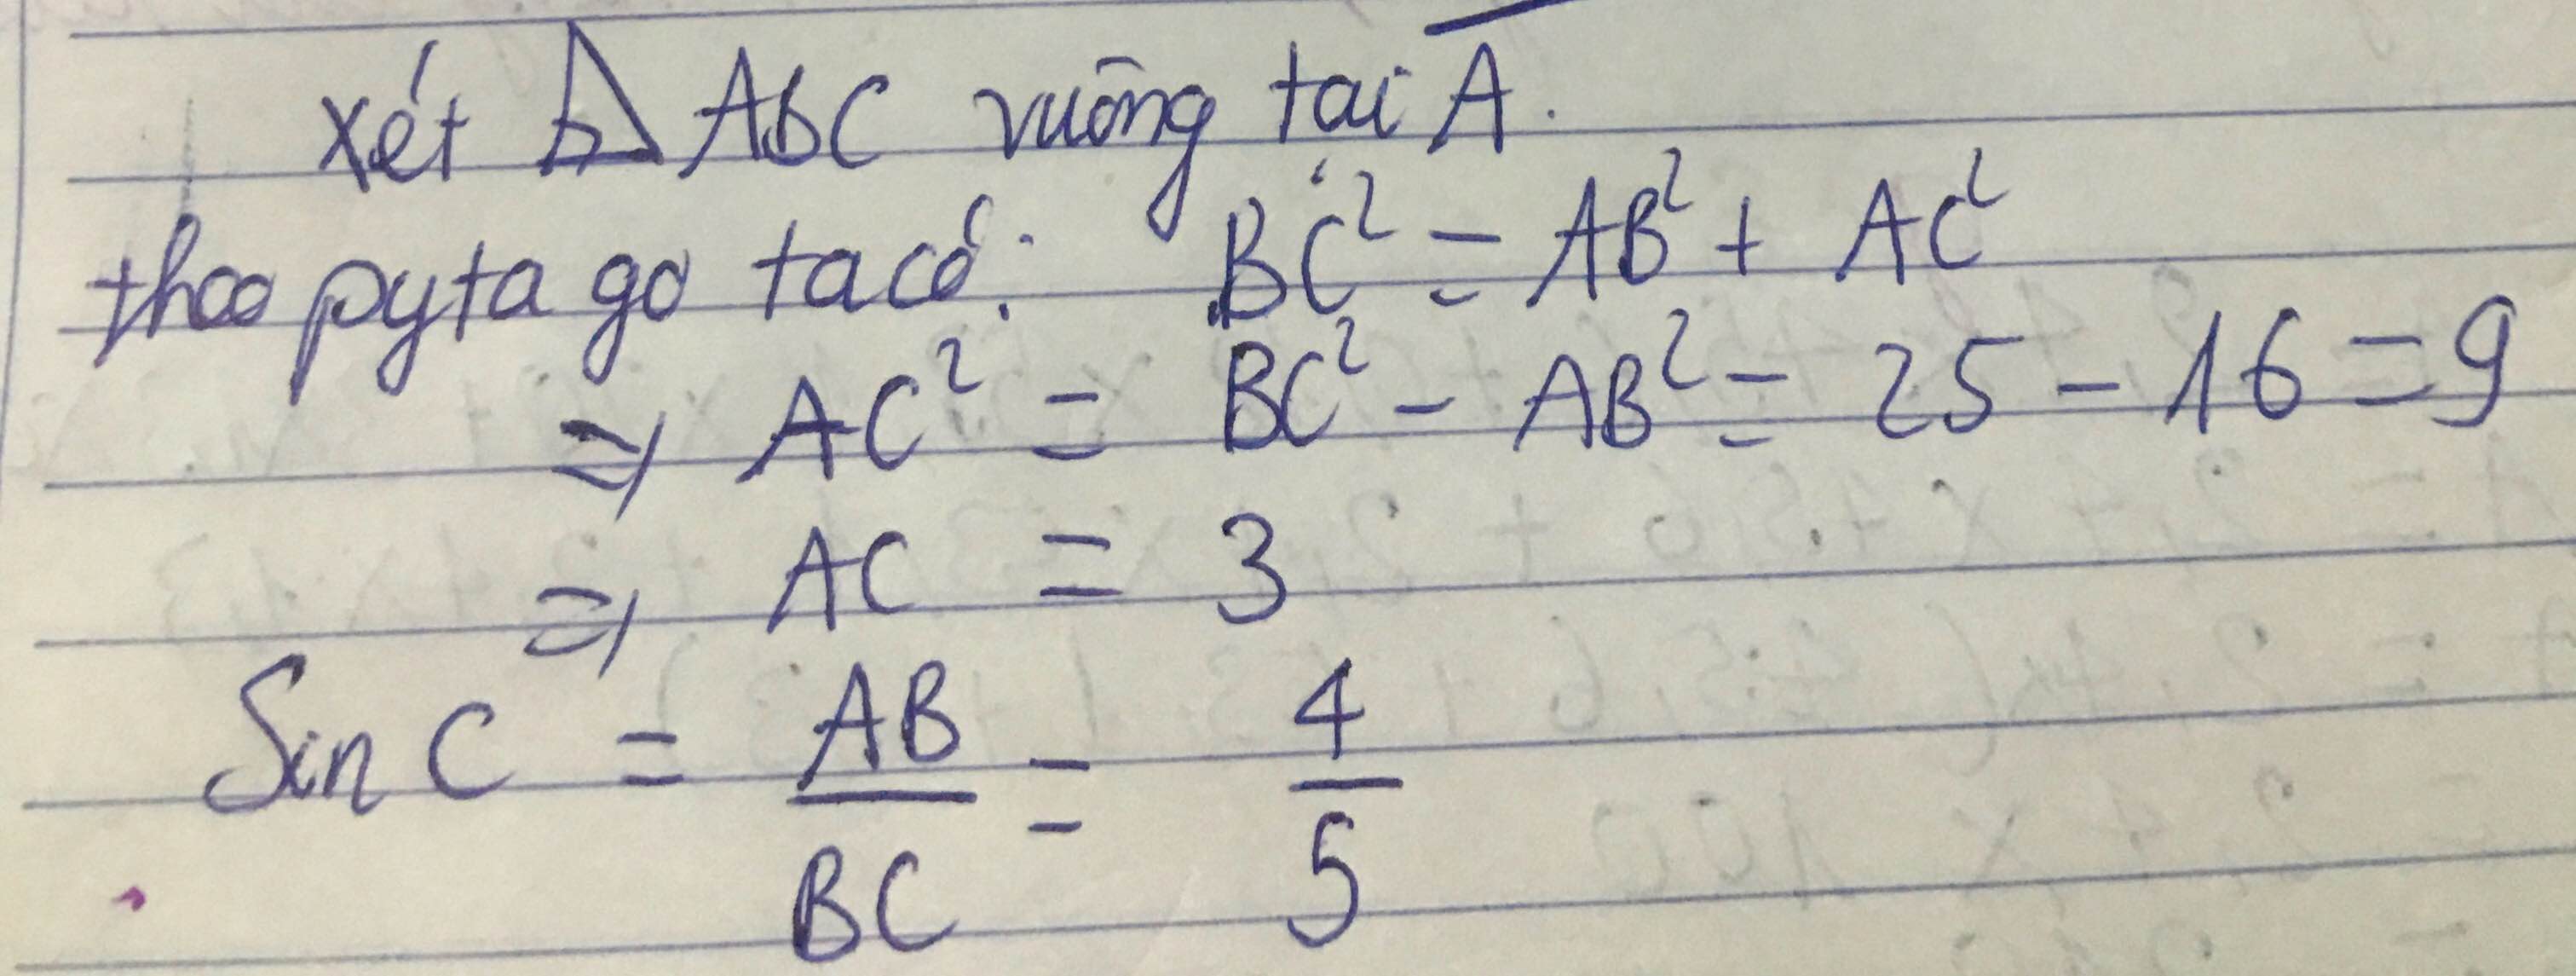 xét Δ ABC vuông tại A.
theo pytago ta có: BC² = AB² + AC²
=> AC² = BC² - AB² = 25 - 16 = 9
=> AC = 3
Sin C = AB/BC = 4/5